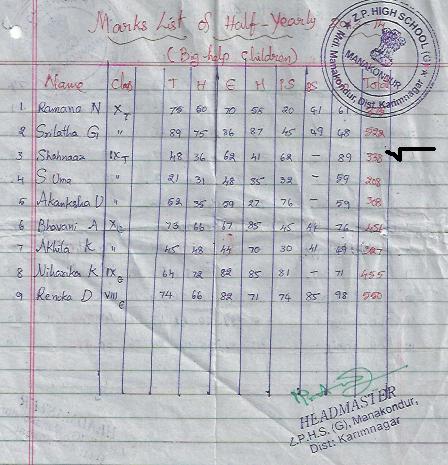 Marks List of Half-Yearly
(Big help children)
Z.P. HIGH SCHOOL (G)
MANAKONDUR
Mdl. Manakondur, Dist. Karimnagar
Name Class T H E M P.S BS Total
1 Ramana N X 75 60 70 55 20 41 61
2 Srilatha G " 89 75 86 87 45 49 68 522
3 Shahnaaz IX T 48 36 62 41 62 - 89 338
4 S Uma " 21 31 48 35 32 - 59 208
5 Akanksha U " 52 35 59 27 76 - 59 308
6 Bhavani A X 73 66 67 85 45 44 76 456
7 Akhila K " 45 48 44 70 30 41 49
8 Niharika K IX 64 72 82 85 81 - 71 455
9 Renuka D VIII 74 66 82 71 74 85 98 550
HEADMASTER
Z.P.H.S. (G), Manakondur,
Dist: Karimnagar